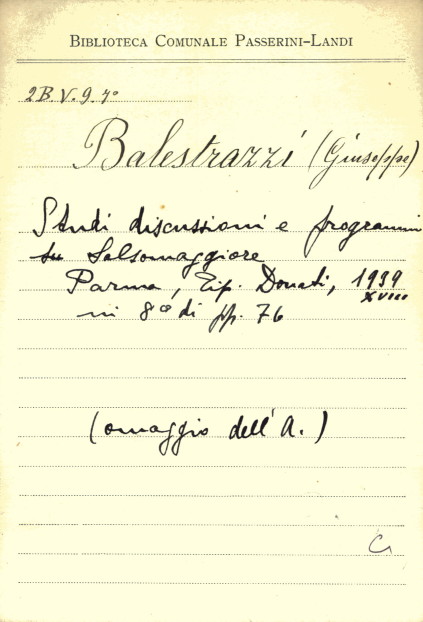 BIBLIOTECA COMUNALE PASSERINI-LANDI
2B.V.9.4°
Balestrazzi (Giuseppe)
Studi discussioni e programmi
su Salsomaggiore
Parma, Tip. Donati, 1939
XVIII
in 8° di pp. 76
(omaggio dell'A.)